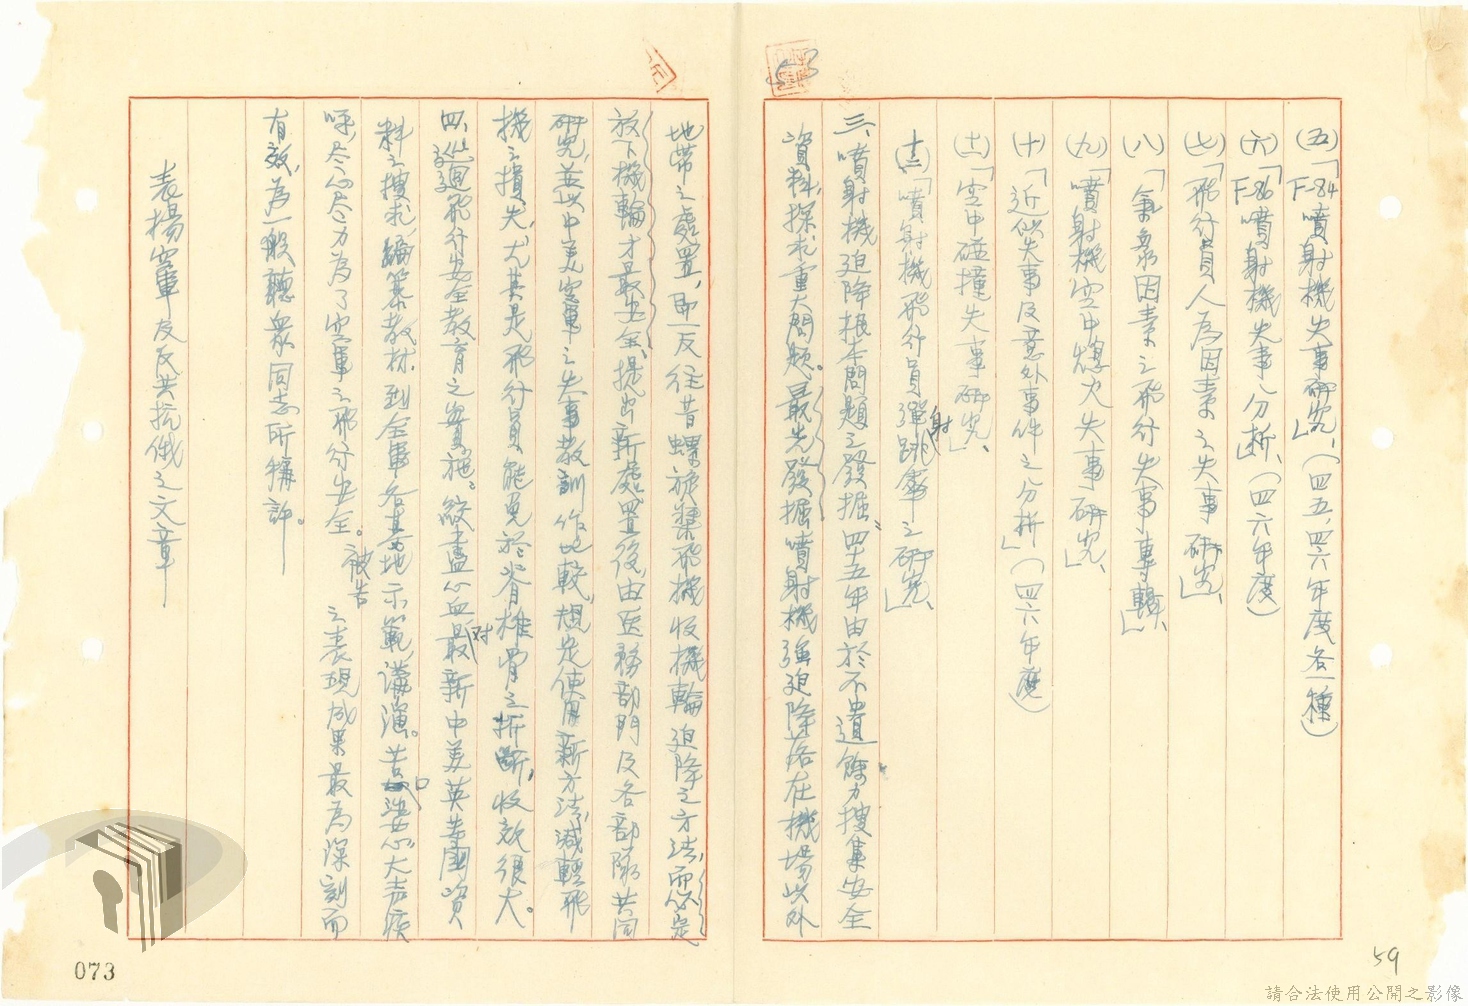 (五)「F-84噴射機失事研究」、(四五、四六年度各一種)
(六)「F-86噴射機失事之分析」、(四六年度)
(七)「飛行員人為因素之失事研究」、
(八)「氣象因素之飛行失事專輯」、
(九)「噴射機空中熄火失事研究」、
(十)「近似失事及意外事件之分析」(四六年度)
(十一)「空中碰撞失事研究」、
(十二)「噴射機飛行員彈射跳傘之研究」、
三、噴射機迫降根本問題之發掘:四十五年由於不遺餘力搜集安全
資料,探求重大問題。最先發掘噴射機強迫降落在機場以外
地帶之處置,即一反往昔螺旋槳飛機收機輪迫降之方法,而必定
放下機輪才最安全,提出新處置後,由医務部門及各部隊共同
研究,並以中美空軍之失事教訓作比較,規定使用新方法,減輕飛
機之損失,尤其是飛行員能免於脊椎骨之折斷,收效很大。
四、巡迴飛行安全教育之實施:絞盡心血,對最新中美英等國資
料之搜求,編纂教材,到全軍各基地示範講演。苦口婆心,大声疾
呼,尽心尽力為了空軍之飛行安全。被告 之表現成果最為深刻而
有效,為一般聽衆同志所稱許。
表揚空軍及反共抗俄之文章
073
59
請合法使用公開之影像